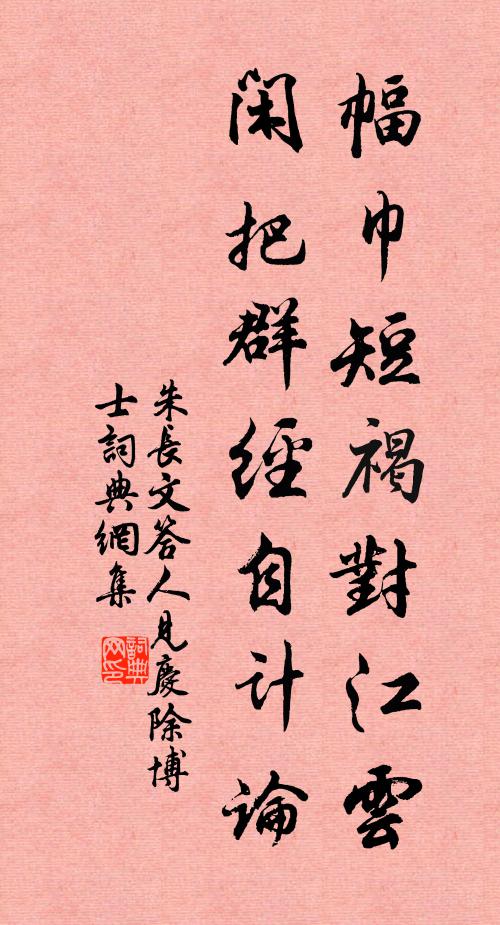 幅巾短褐對江雲
閑把群經自計論
朱長文答人見慶除博
士詞典網集
詞典
网印